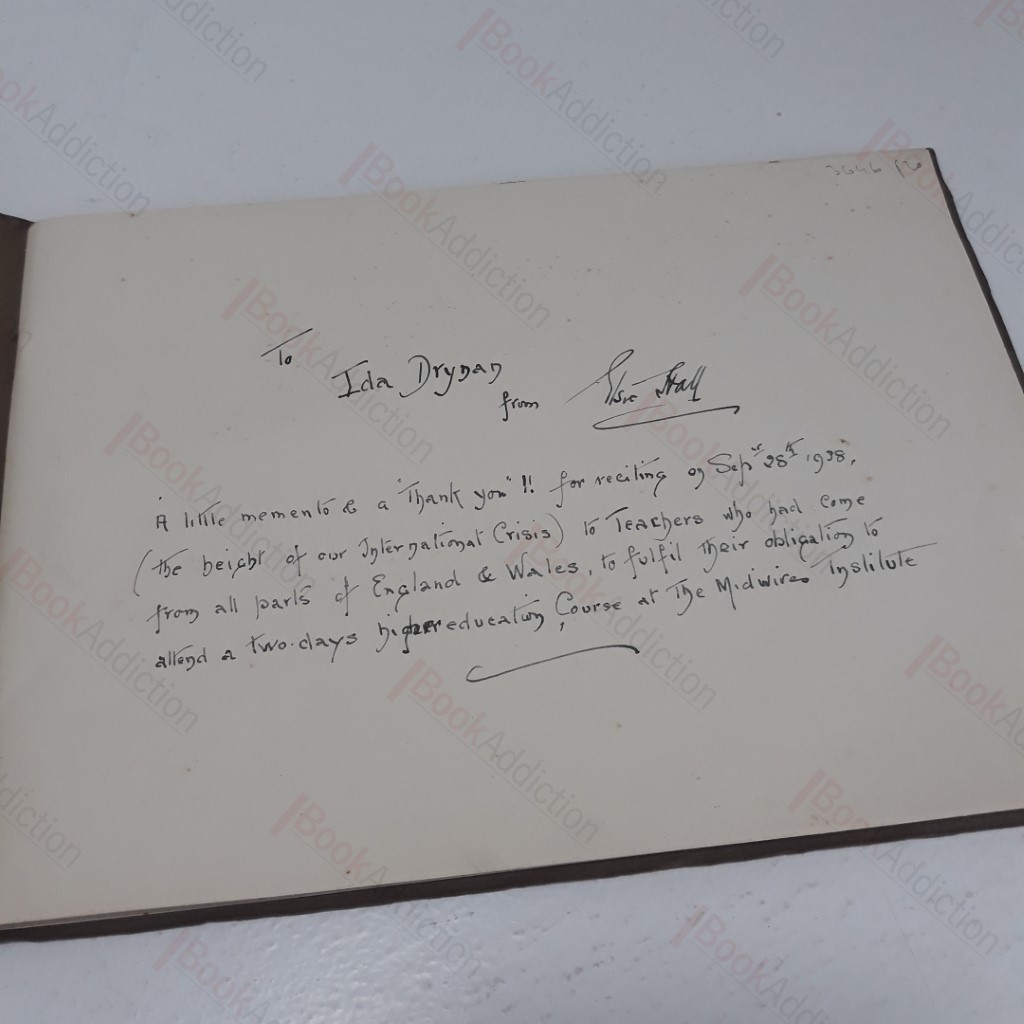 3646 P20
To
Ida Drynan
from Elsie Hall
A little memento & a "Thank you"!! for reciting on Sepr 28th 1938,
(the height of our International Crisis) to Teachers who had come
from all parts of England & Wales, to fulfil their obligation to
attend a two-days higher education Course at The Midwives Institute
BookAddiction